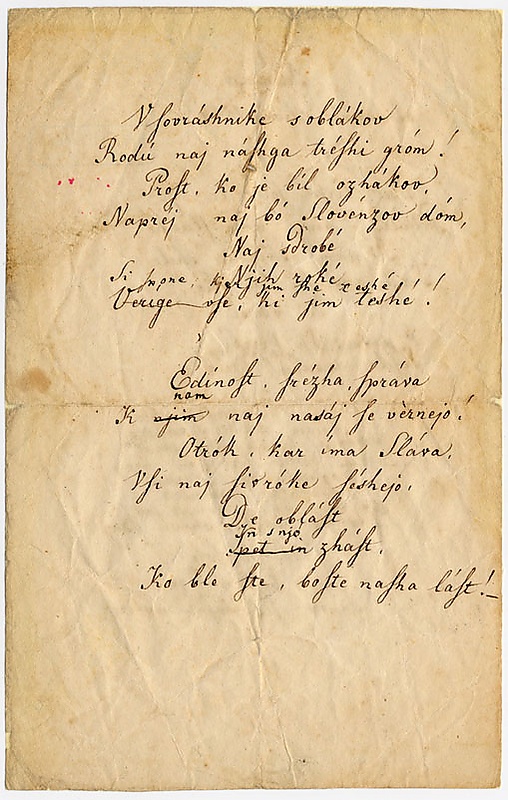 V ſovráshnike s oblákov
Rodú naj náſhga tréſhi gróm!
Proſt, ko je bíl ozhákov,
Naprej naj bó Slovénzov dóm,
Naj sdrobé
Njih roké
Si ſpone, ki jim ſhe teshé
Verige vſe, ki jim teshé!
Edínoſt, ſrézha, ſpráva
nam
K njim naj nasáj ſe vèrnejo!
Otrók, kar íma Sláva,
Vſi naj ſi v róke ſéshejo,
De obláſt
In s njo
ſpet in zháſt,
Ko ble ſte, boſte naſha láſt!–